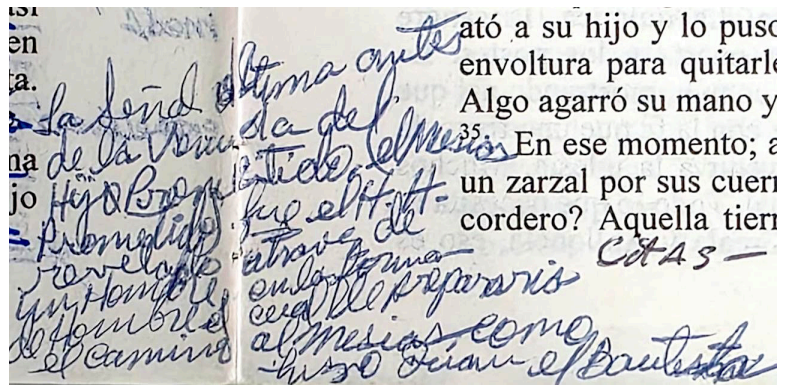 en
ta.
ató a su hijo y lo puso
envoltura para quitarle
Algo agarró su mano y
35 En ese momento; a
un zarzal por sus cuern
cordero? Aquella tierr
na
jo
La Señal última antes
de la Venida del
Hijo Prometido. el Mesías
Prometido fue el H. H.
revelado atraves de
un Hombre en la forma
de Hombre
el camino al Mesias como
hizo Juan el Bautista
citas -